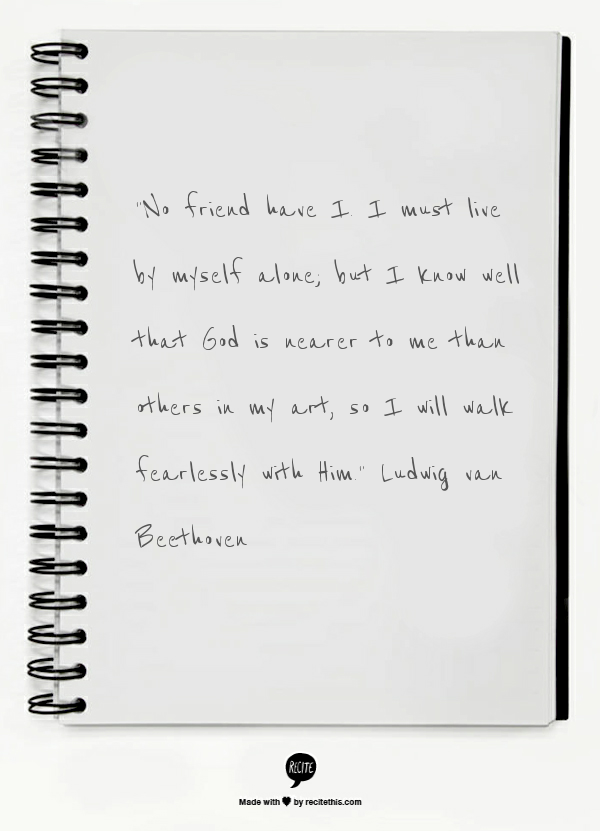 "No friend have I. I must live
by myself alone; but I know well
that God is nearer to me than
others in my art, so I will walk
fearlessly with Him." Ludwig van
Beethoven
RECITE
Made with ♥ by recitethis.com